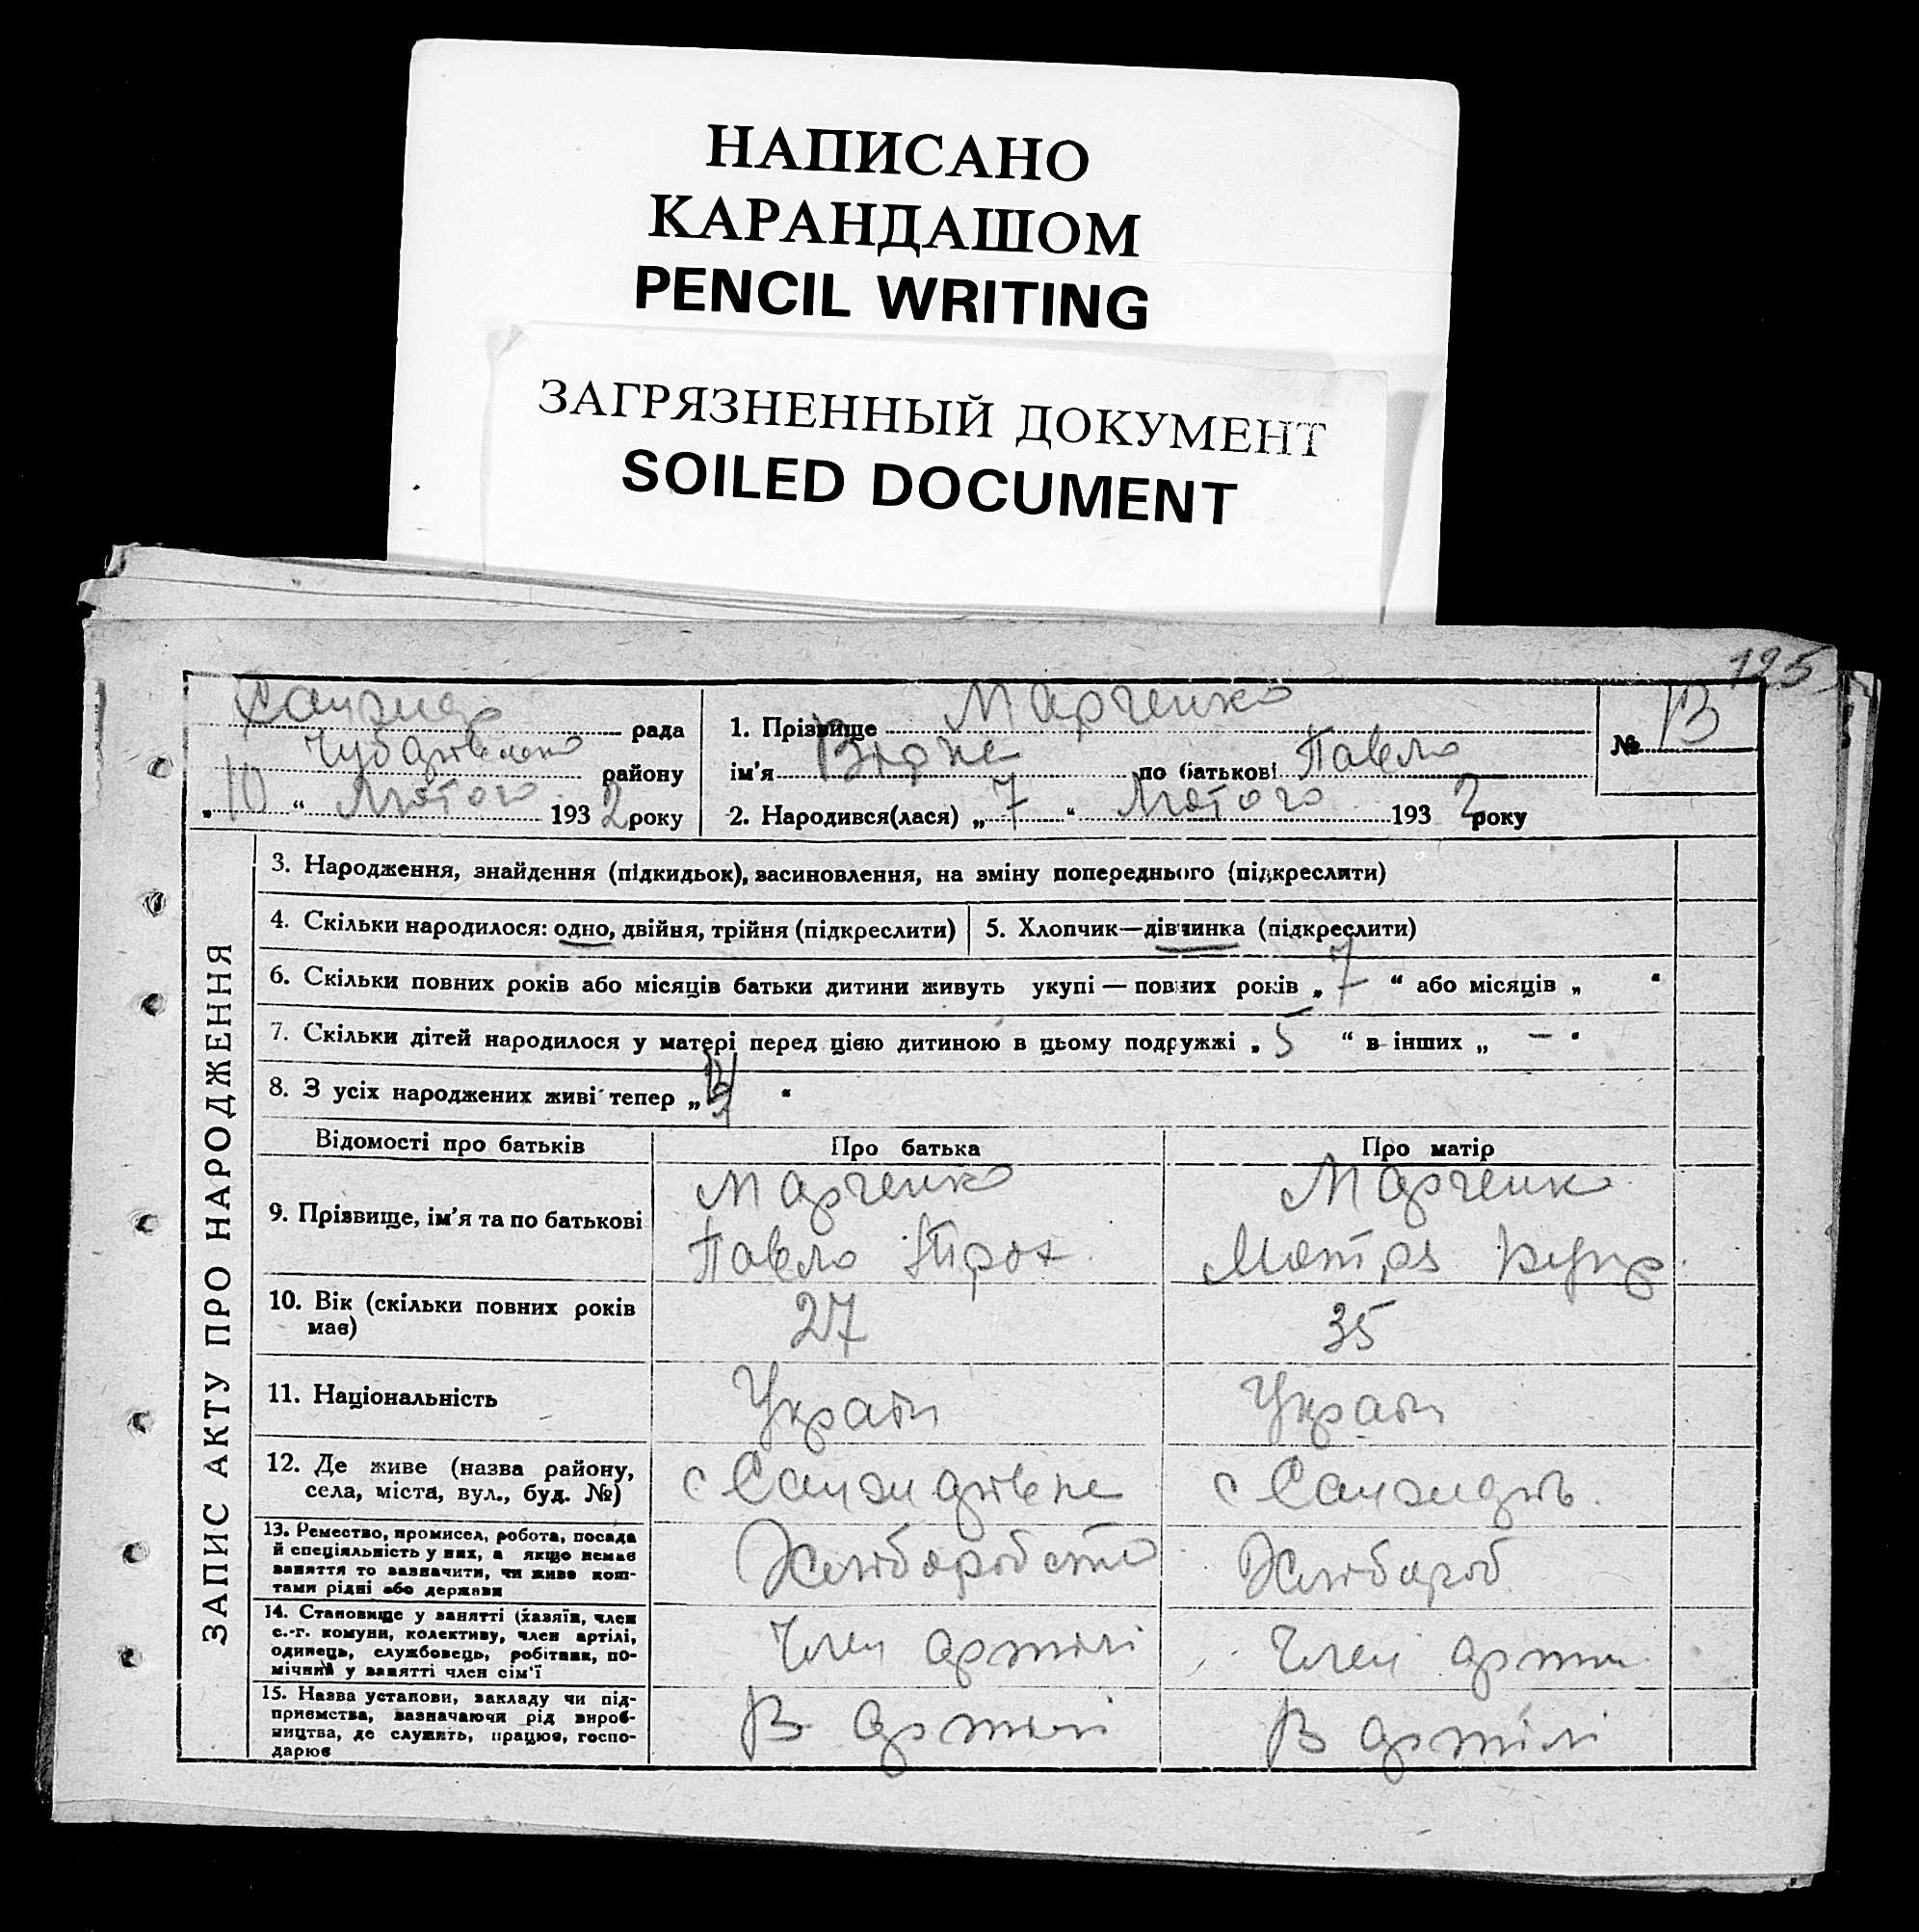 НАПИСАНО
КАРАНДАШОМ
PENCIL WRITING
ЗАГРЯЗНЕННЫЙ ДОКУМЕНТ
SOILED DOCUMENT
125
рада
району
„10“ Лютого 1932 року
1. Прізвище Марченко
ім'я по батькові Павло
2. Народився(лася) „7“ Лютого 1932 року
№ 13
ЗАПИС АКТУ ПРО НАРОДЖЕННЯ
3. Народження, знайдення (підкидьок), засиновлення, на зміну попереднього (підкреслити)
4. Скільки народилося: одно, двійня, трійня (підкреслити)
5. Хлопчик—дівчинка (підкреслити)
6. Скільки повних років або місяців батьки дитини живуть укупі — повних років „7“ або місяців „ “
7. Скільки дітей народилося у матері перед цією дитиною в цьому подружжі „5“ в інших „—“
8. З усіх народжених живі тепер „ “
Відомості про батьків Про батька Про матір
9. Прізвище, ім'я та по батькові
Марченко
Павло
Марченк
10. Вік (скільки повних років
має)
27
35
11. Національність
Україн
Україн
12. Де живе (назва району,
села, міста, вул., буд. №)
с
с
13. Ремество, промисел, робота, посада
й спеціяльність у них, а якщо немає
заняття то зазначити, чи живе кош-
тами рідні або держави
Хліборобство
Хлібороб
14. Становище у занятті (хазяїн, член
с.-г. комуни, колективу, член артілі,
одинець, службовець, робітник, по-
мічний у занятті член сім'ї
Член артілі
Член
15. Назва установи, закладу чи під-
приємства, зазначаючи рід вироб-
ництва, де служить, працює, госпо-
дарює
В артілі
В артілі